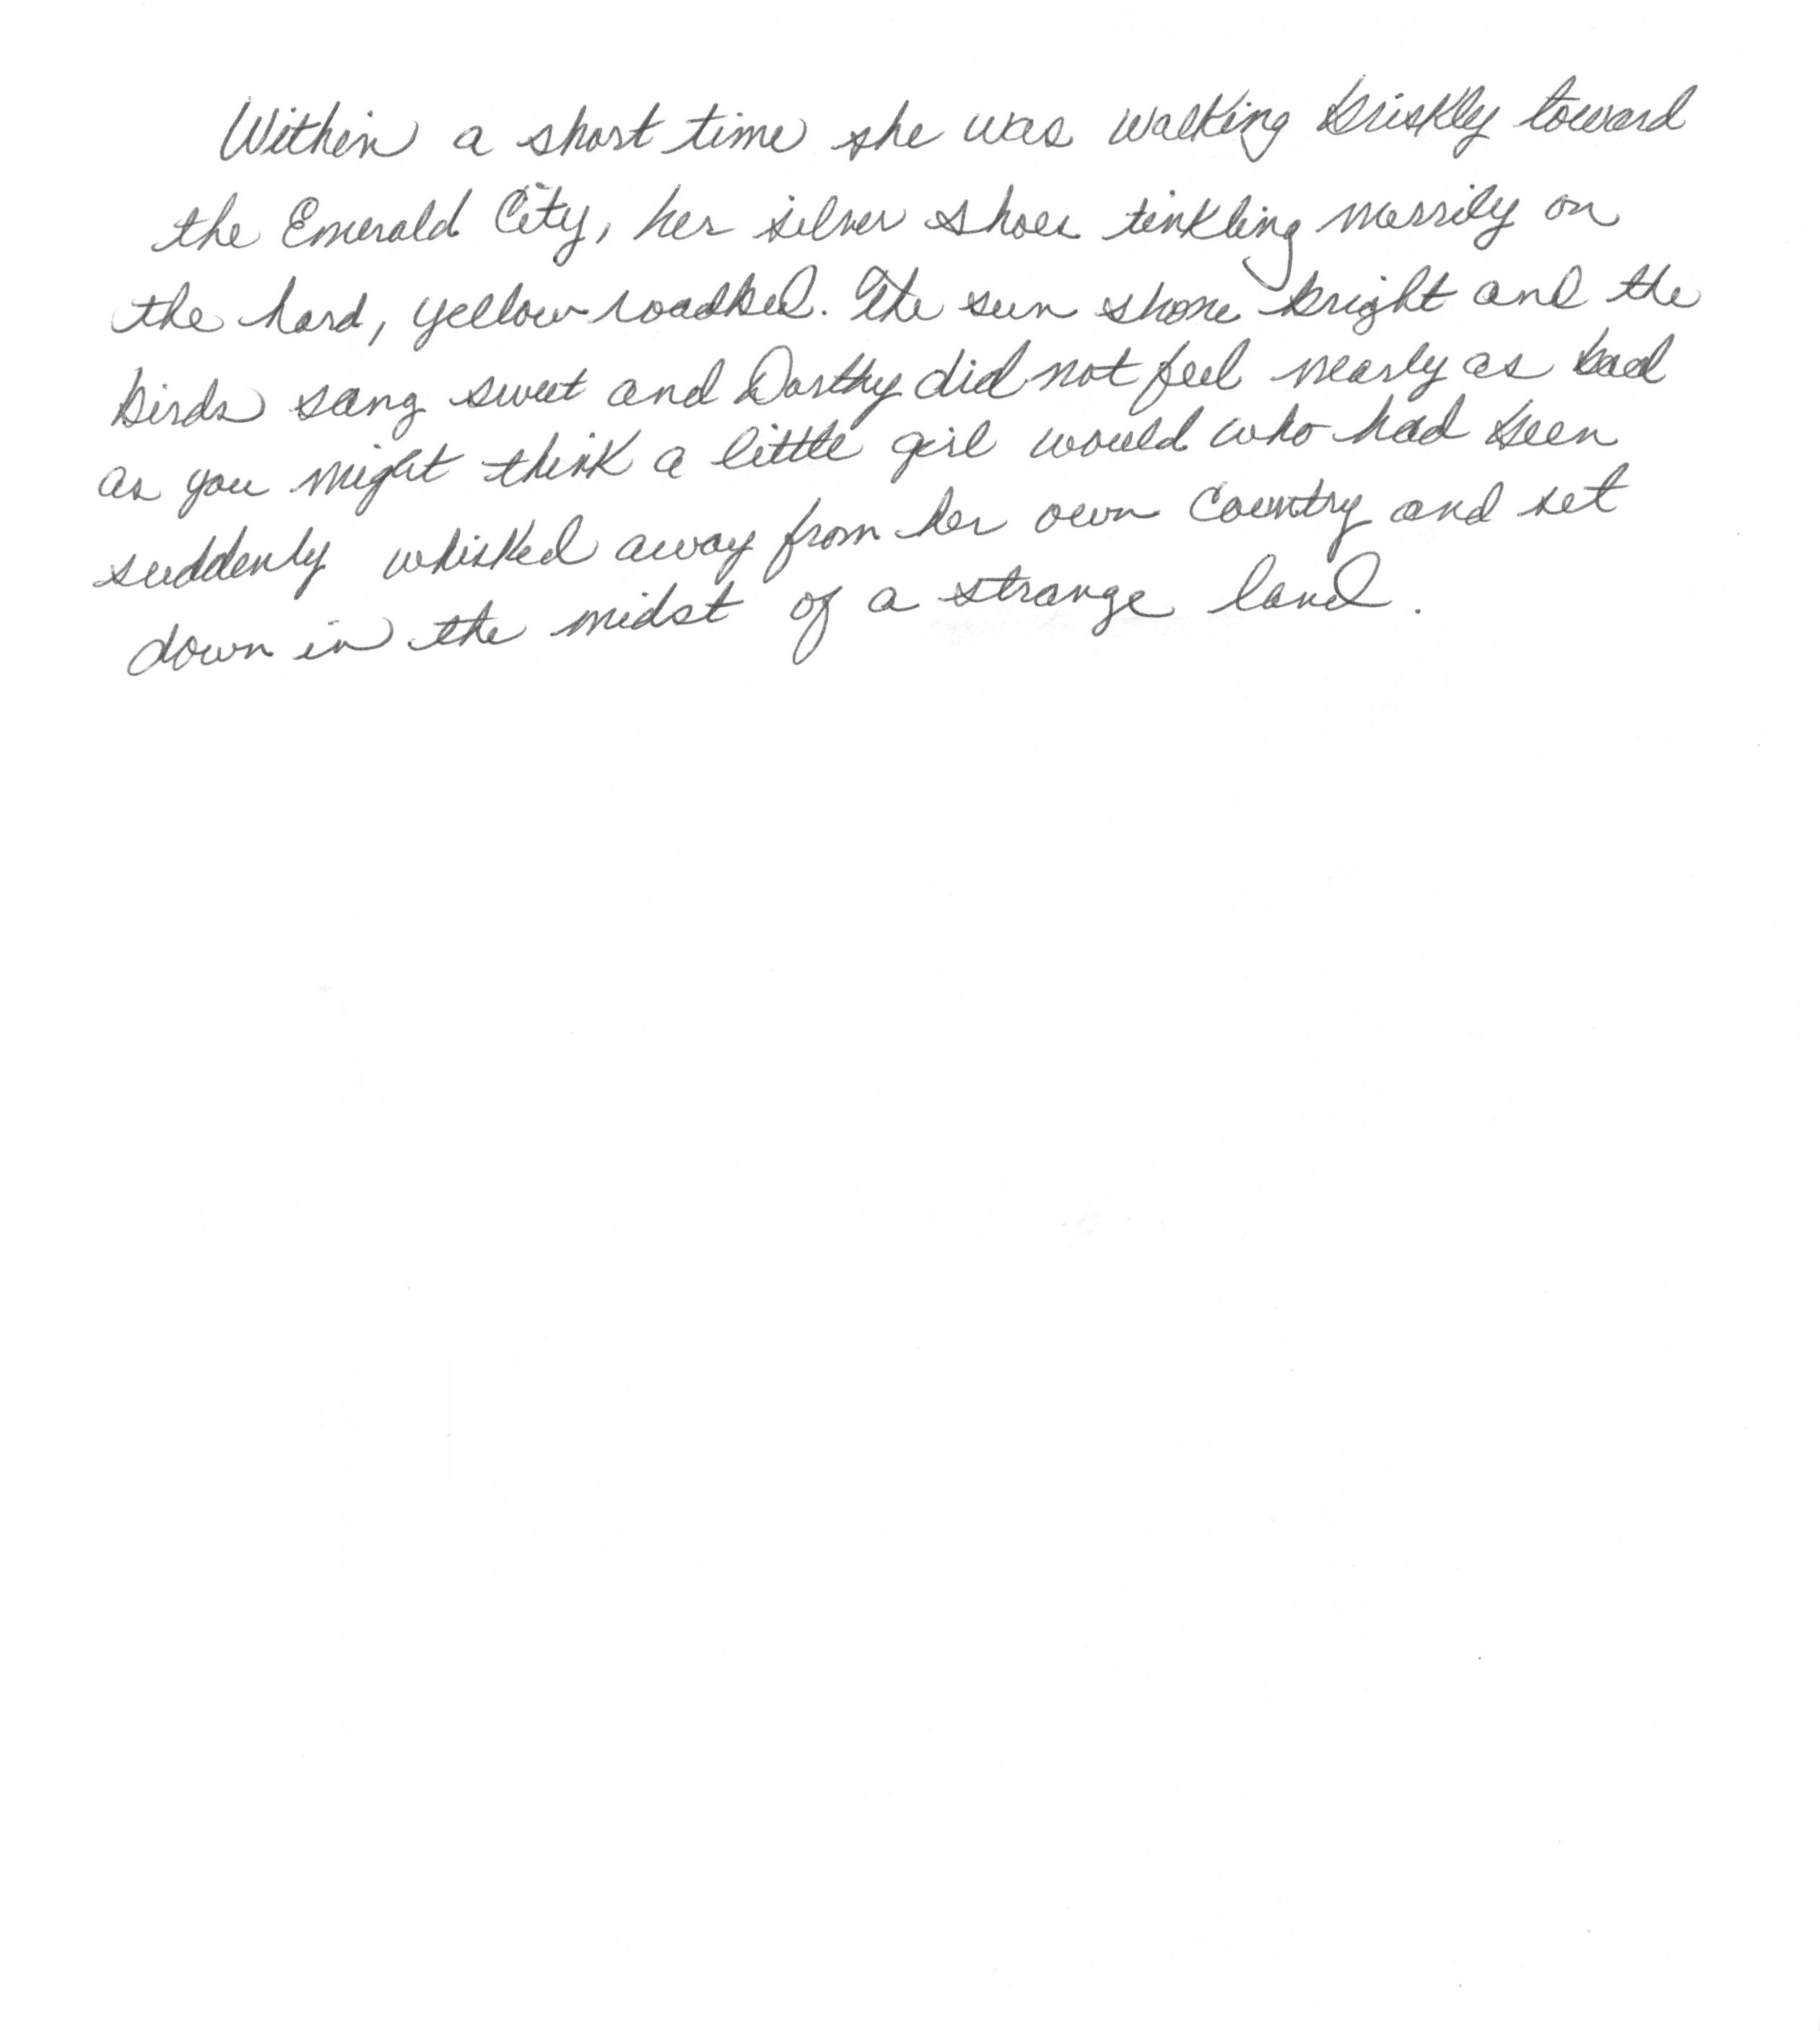 Within a short time she was walking briskly toward
the Emerald City, her silver shoes tinkling merrily on
the hard, yellow roadbed. The sun shone bright and the
birds sang sweet and Dorthy did not feel nearly as bad
as you might think a little girl would who had been
suddenly whisked away from her own country and set
down in the midst of a strange land.